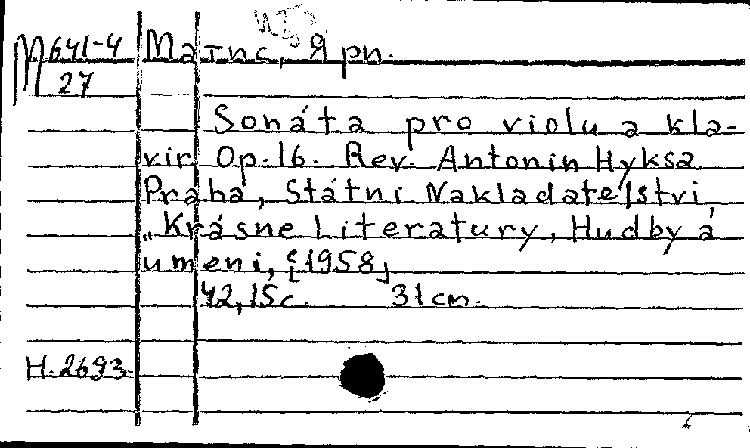 М 641-4 Матис, Ярп.
27
Sonáta pro violu a kla-
vir Op.16. Rev. Antonin Hyksa
Praha, Státni Nakladatelstvi
„Krásne Literatury, Hudby á
umeni, [1958]
42, 15c. 31cm.
H.2693